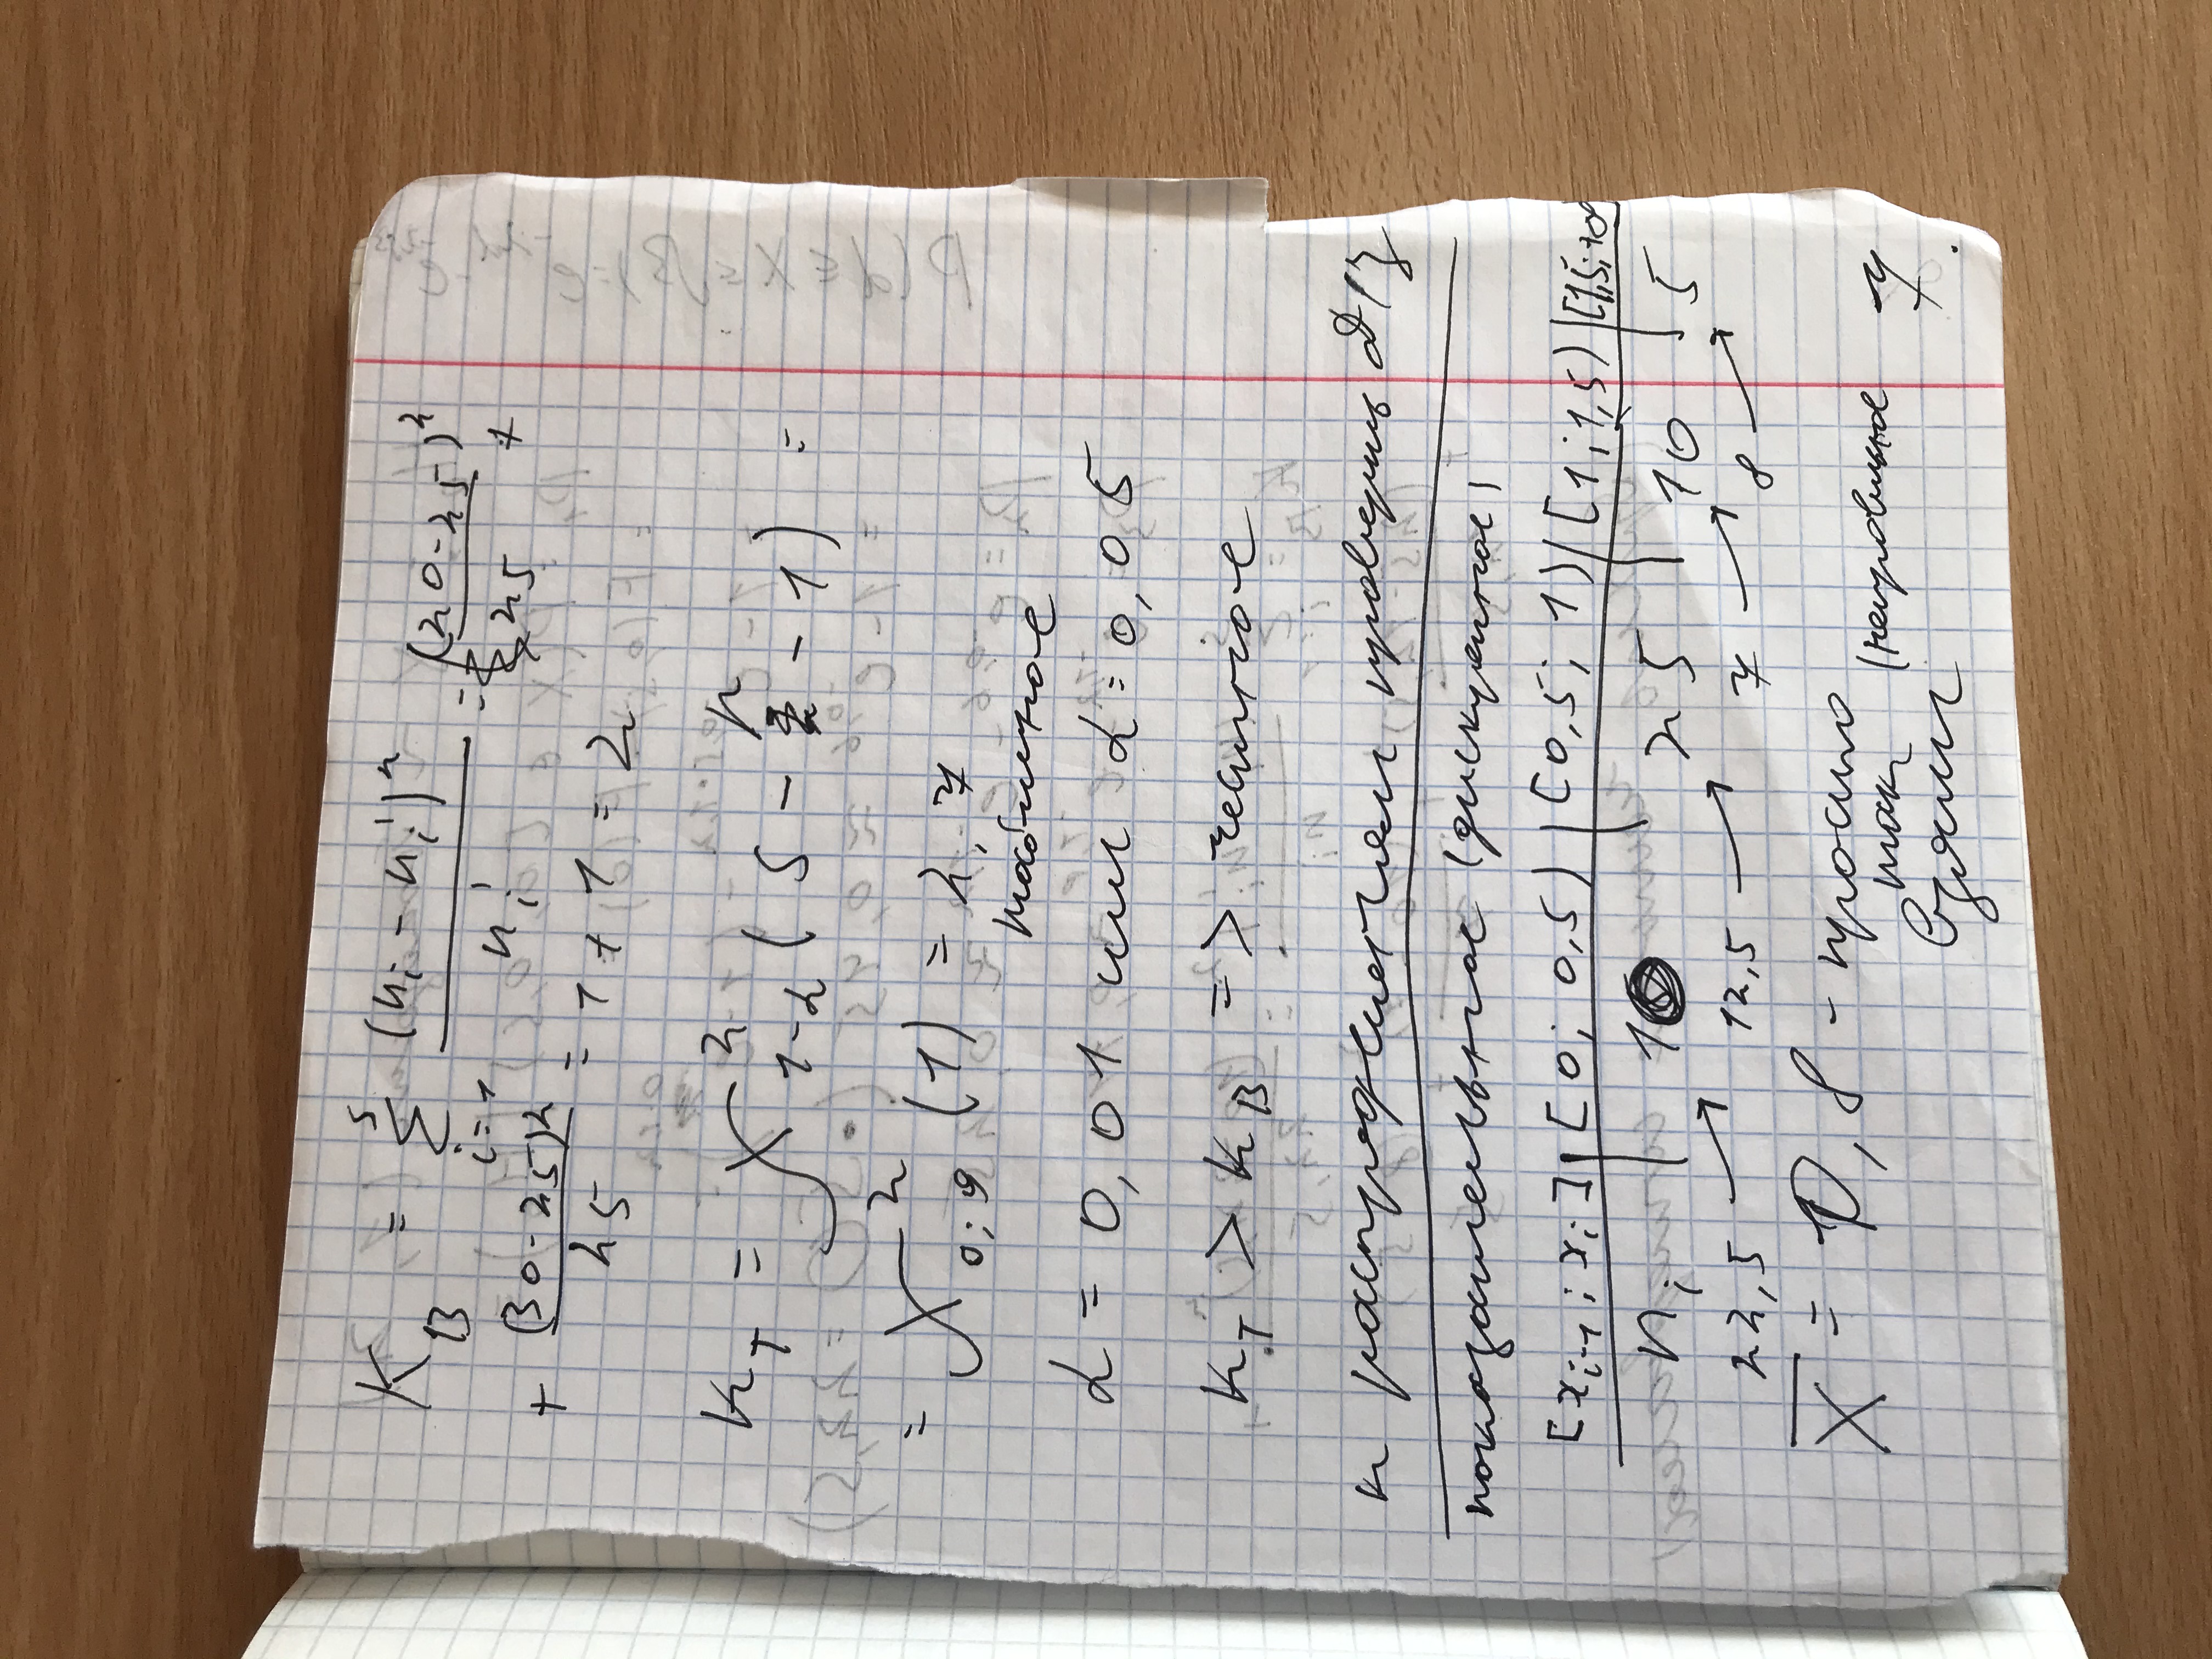 K_B = \sum_{i=1}^{s} \frac{(n_i - n_i')^2}{n_i'} = \frac{(20-25)^2}{25} +
+ \frac{(30-25)^2}{25} = 1 + 1 = 2
K_T = χ^2_{1-α} (s - r - 1) =
= χ^2_{0,9} (1) = 2,7
табличное
α = 0,01 или α = 0,05
K_T > K_B => честное
к распределениям проверить Д/З
показательное (дискретное)
[x_{i-1}; x_i] | [0; 0,5) | [0,5; 1) | [1; 1,5) | [1,5; +∞
n_i | 10 | 25 | 10 | 5
22,5 → 12,5 → 7 → 8 →
\overline{X} = 0,8 - просто
так (неправильно
взяли